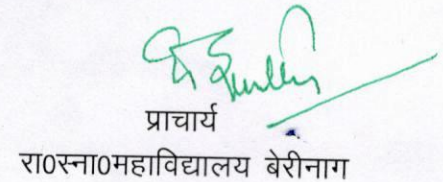 प्राचार्य
रा0स्ना0महाविद्यालय बेरीनाग